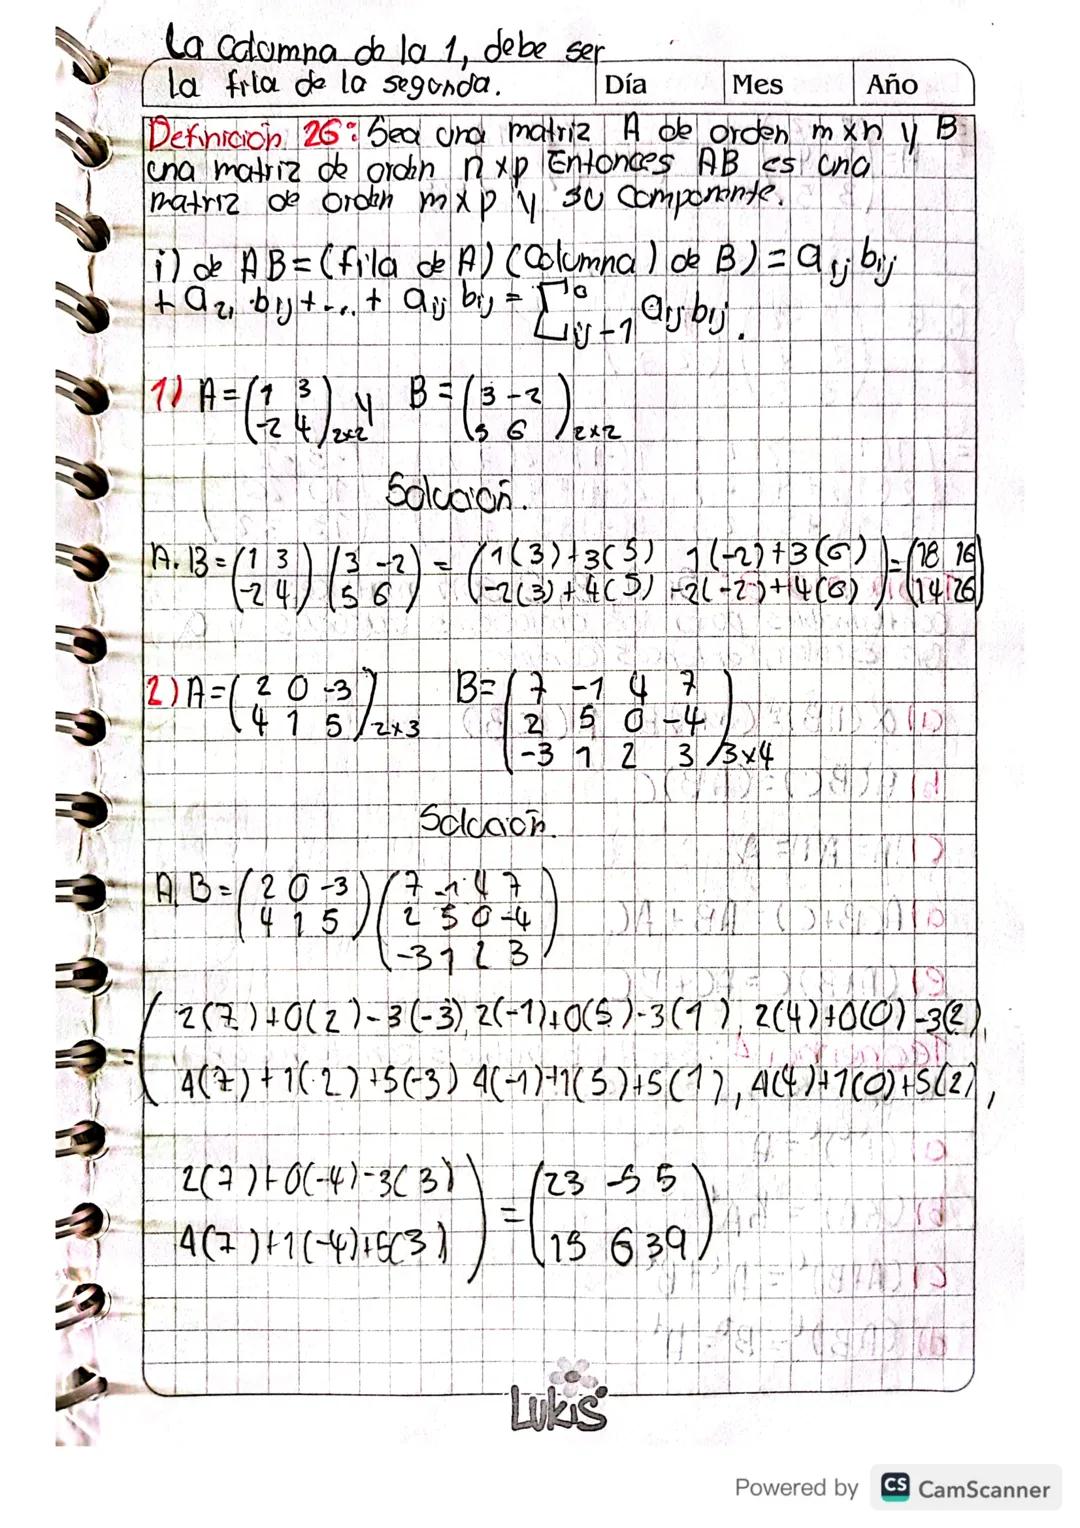 La columna de la 1, debe ser
la fila de la segunda.
Día Mes Año
Definición 26: Sea una matriz A de orden mxn y B
una matriz de orden nxp Entonces AB es una
matriz de orden mxp y su componente.
i) de AB=(fila de A) (Columna) de B) = a₁ⱼ bᵢⱼ
+ a₂₁ bᵢⱼ+...+ aᵢⱼ bᵢⱼ = Σ aᵢⱼbᵢⱼ.
1) A=(1 3 y B=(3 -2
-2 4)2x2 5 6)2x2
Solución.
A.B=(1 3)(3 -2) = (1(3)+3(5) 1(-2)+3(6))=(18 16)
(-2 4)(5 6) (-2(3)+4(5) -2(-2)+4(6)) (14 26)
2) A=(2 0 -3 B=(7 -1 4 7
4 1 5)2x3 2 5 0 -4
-3 1 2 3)3x4
Solución.
A.B=(2 0 -3)(7 -1 4 7
4 1 5) 2 5 0 -4
-3 1 2 3)
(2(7)+0(2)-3(-3), 2(-1)+0(5)-3(1), 2(4)+0(0)-3(2),
=
4(7)+1(2)+5(-3) 4(-1)+1(5)+5(1), 4(4)+1(0)+5(2),
2(7)+0(-4)-3(3)) = (23 -5 5
4(7)+1(-4)+5(3)) (15 6 39)
Lukis
Powered by CS CamScanner